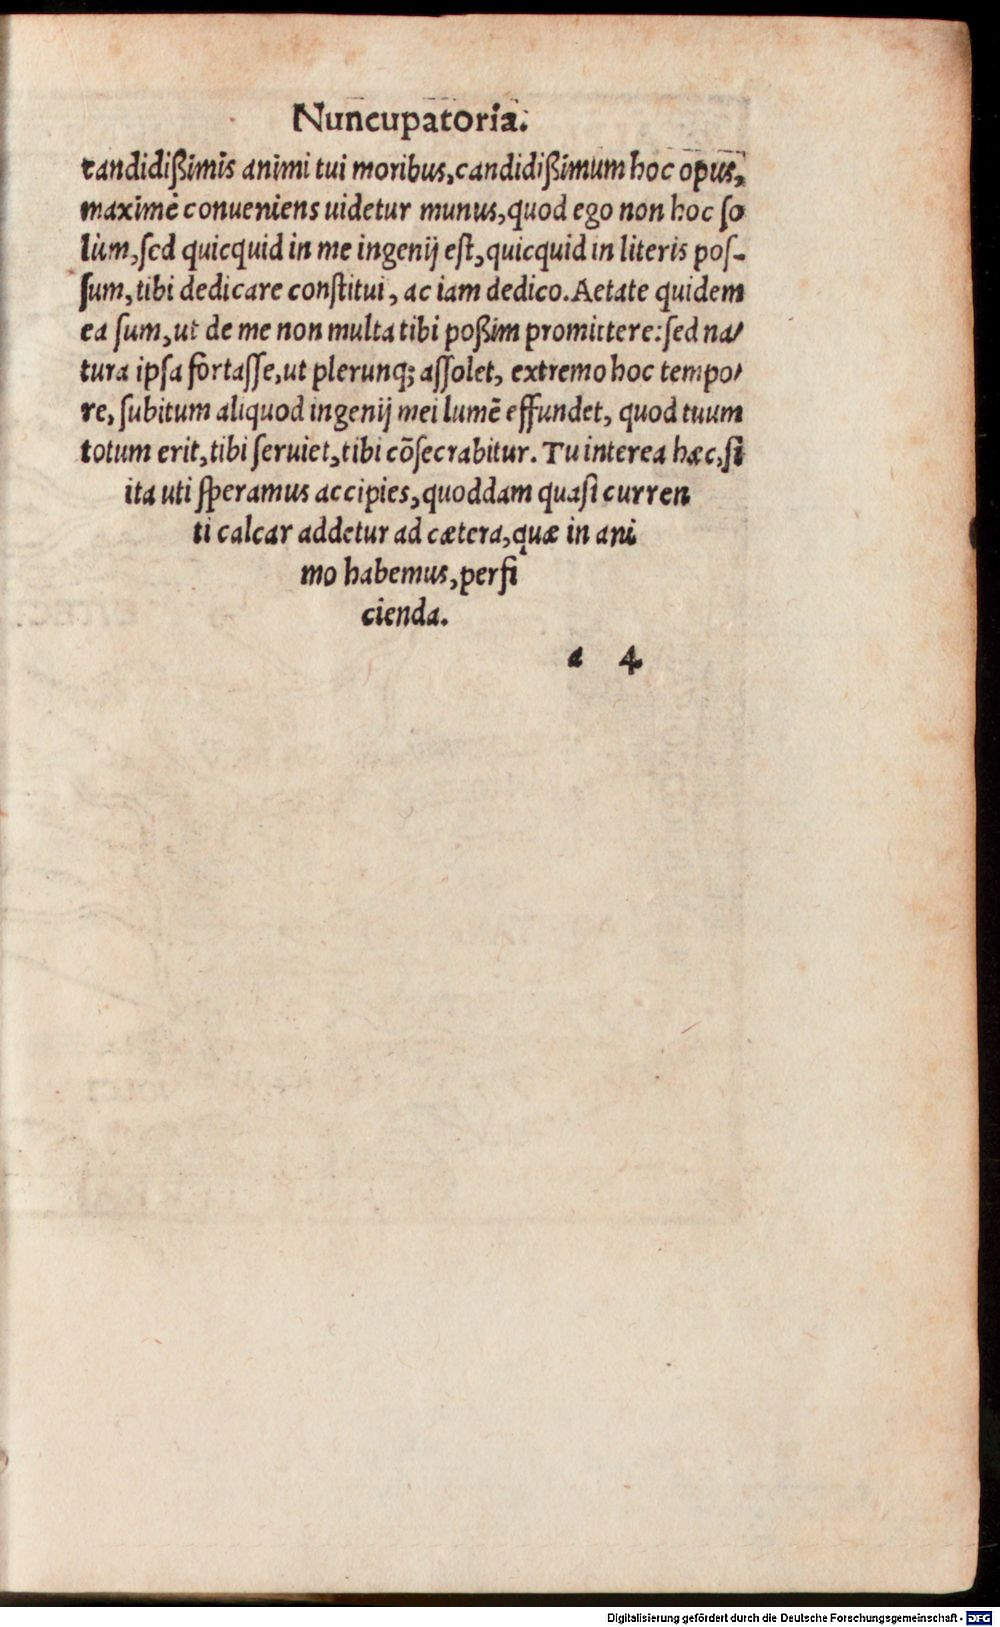 Nuncupatoria.
candidißimis animi tui moribus, candidißimum hoc opus,
maximè conueniens uidetur munus, quod ego non hoc ſo
lùm, ſed quicquid in me ingenij eſt, quicquid in literis poſ-
ſum, tibi dedicare conſtitui, ac iam dedico. Aetate quidem
ea ſum, ut de me non multa tibi poßim promittere: ſed na/
tura ipſa fortaſſe, ut plerunq; aſſolet, extremo hoc tempo/
re, ſubitum aliquod ingenij mei lumē effundet, quod tuum
totum erit, tibi ſeruiet, tibi cōſecrabitur. Tu interea hæc, ſi
ita uti ſperamus accipies, quoddam quaſi curren
ti calcar addetur ad cætera, quæ in ani
mo habemus, perfi
cienda.
a 4
Digitalisierung gefördert durch die Deutsche Forschungsgemeinschaft - DFG